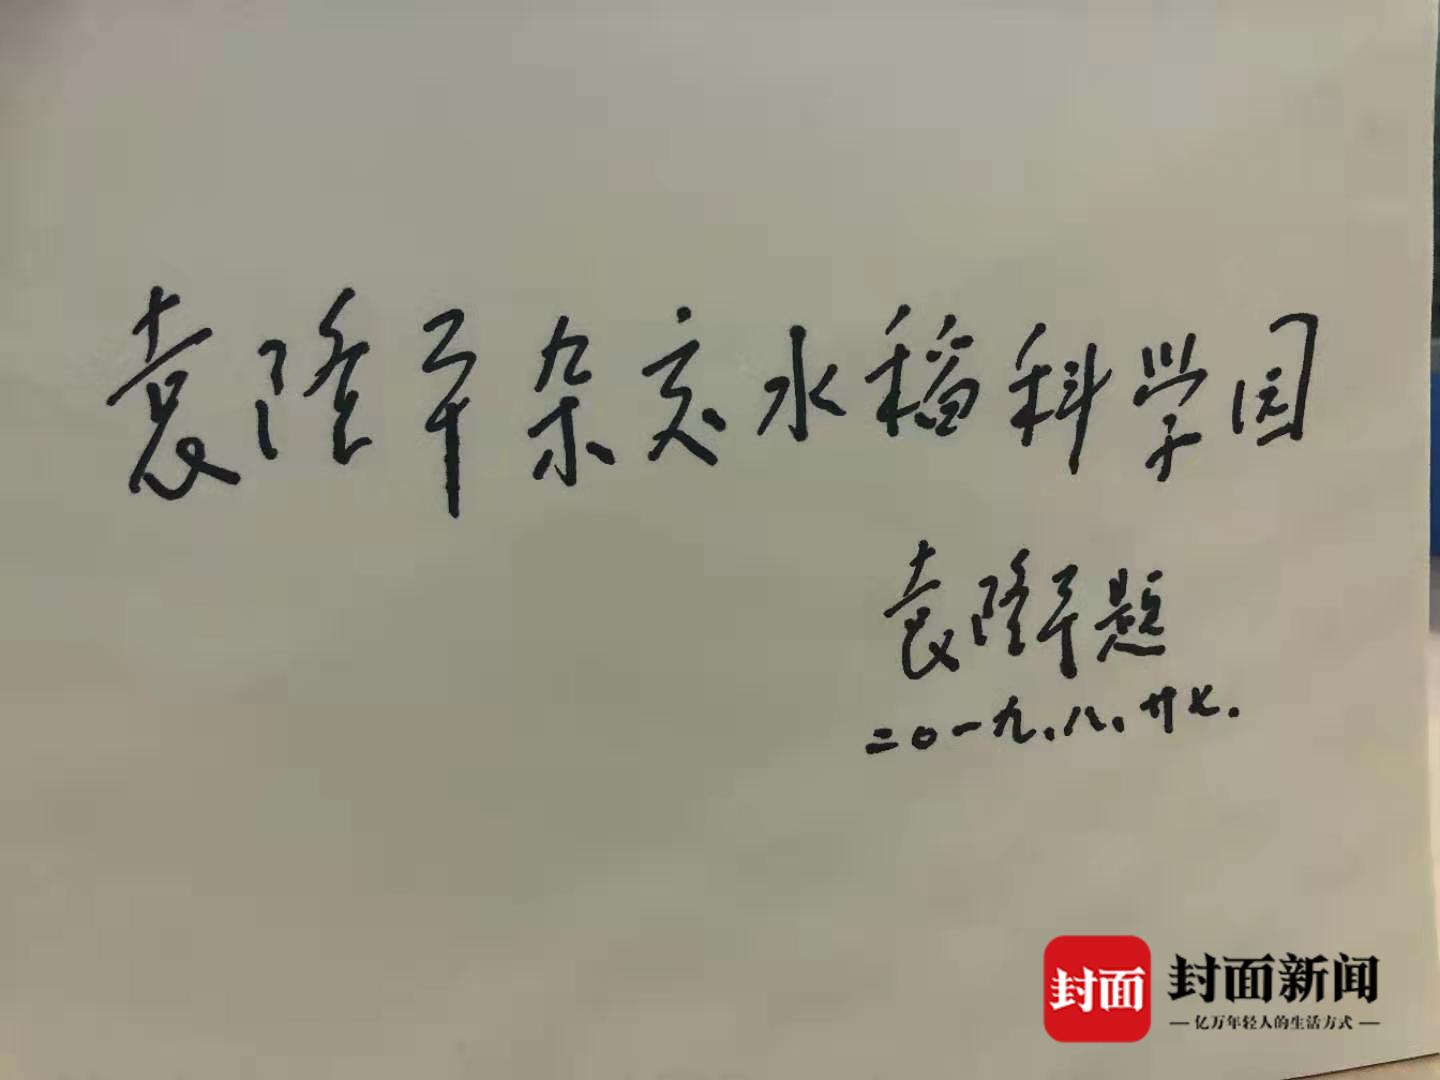 袁隆平杂交水稻科学园
袁隆平题
二〇一九、八、廿七.
封面
封面新闻
—亿万年轻人的生活方式—